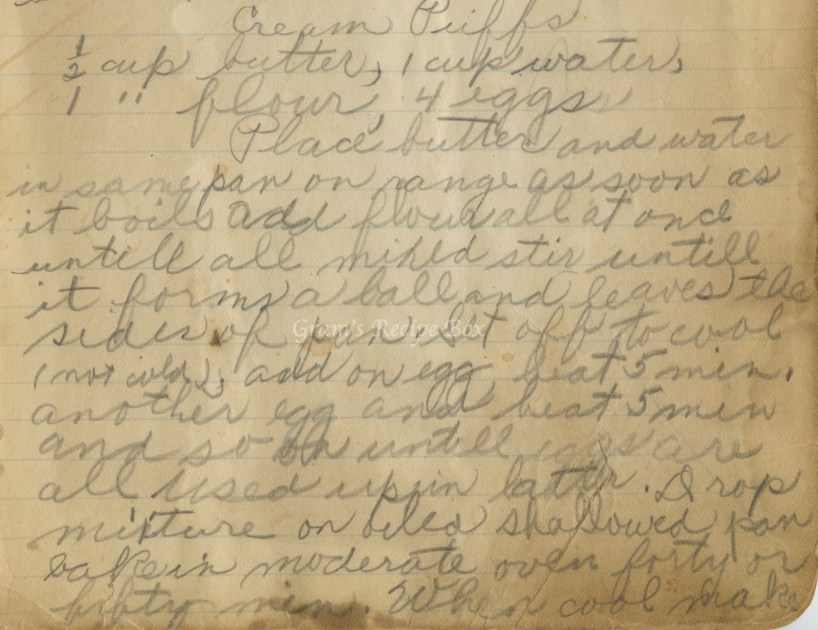 Cream Puffs
1/2 cup butter, 1 cup water,
1 " flour, 4 eggs
Place butter and water
in same pan on range as soon as
it boils add flour all at once
untill all mixed stir untill
it forms a ball and leaves the
sides of pan sit off to cool
(not cold), add on egg beat 5 min.
another egg and beat 5 min
and so on untill eggs are
all used up in batter. Drop
mixture on oiled shallowed pan
bake in moderate oven forty or
fifty min. When cool make
Gram's Recipe Box